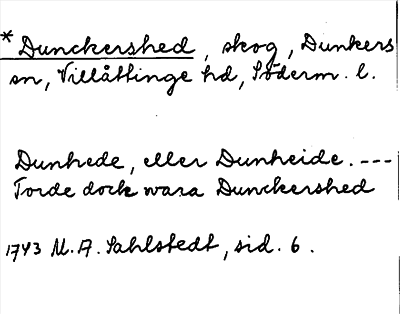 *Dunckershed, skog, Dunkers
sn, Villåttinge hd, Söderm. l.
Dunhede, eller Dunheide. ---
Torde dock wara Dunckershed
1743 M. A. Sahlstedt, sid. 6.